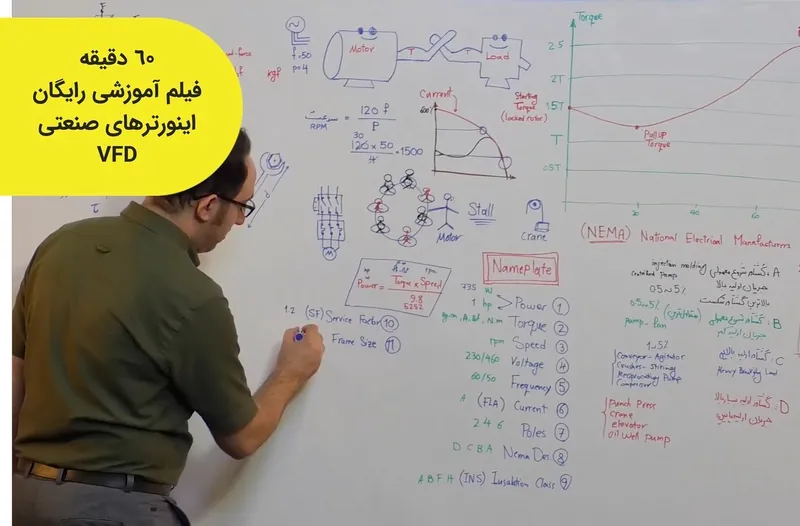 ۶۰ دقیقه
فیلم آموزشی رایگان
اینورترهای صنعتی
VFD
kgf
f=50
p=4
Motor
T
T
Load
Current
600%
Starting
Torque
(locked rotor)
سرعت
RPM
= 120 f
P
30
120 × 50
4
= 1500
Torque
2.5
2T
1.5T
T
0.5T
Pull up
Torque
30
40
60
Stall
Motor
Crane
M
(NEMA) National Electrical Manufacturers
Nameplate
hp
rpm
Power = Torque × Speed
9.8
5252
735 W
1 hp
Power 1
Torque 2
rpm Speed 3
230/460 Voltage 4
60/50 Frequency 5
A (FLA) Current 6
2 4 6 Poles 7
D C B A Nema Des. 8
A B F H (INS) Insulation Class 9
1.2 (SF) Service Factor 10
Frame Size 11
A: گشتاور شروع معمولی
injection molding
جریان اولیه بالا
centrifugal pump
بالاترین گشتاور شکست
0.5~5%
B: گشتاور شروع معمولی
0.5~5%
pump-fan
C: گشتاور اولیه بالا
1~5%
Heavy Breaking Load
Conveyor-Agitator
Crushers-Stirring
Reciprocating Pump
Compressor
D: گشتاور اولیه بسیار بالا
جریان اولیه پایین
Punch Press
crane
elevator
oil Well Pump